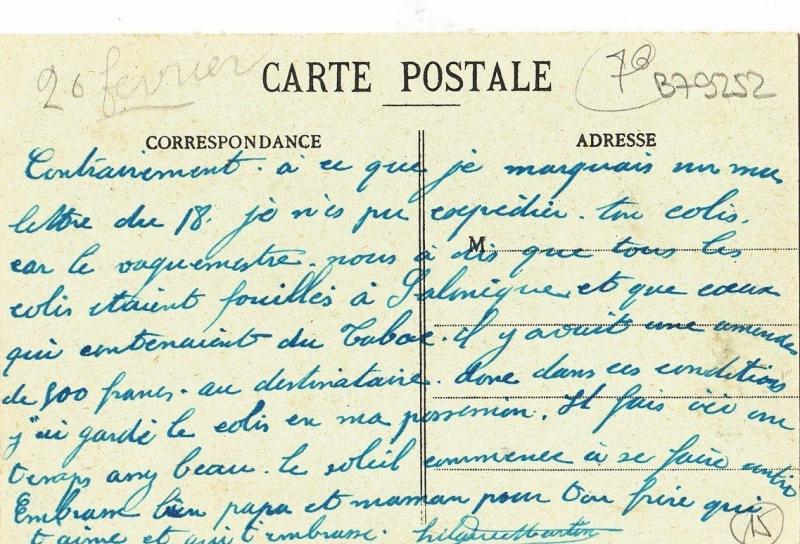 20 février
CARTE POSTALE
70
B79252
CORRESPONDANCE
ADRESSE
M
Contrairement. à ce que je marquais sur ma
lettre du 18. je n'es pu expédier. ton colis.
car le vaguemestre. nous à dis que tous les
colis etaient fouillés à Salonique et que ceux
qui contenaient du Tabac. il y avait une amende
de 500 francs. au destinataire. donc dans ces conditions
j'ai gardé le colis en ma possession. Il fais ici un
temps assy beau. le soleil commence à se faire sentir
Embrasse bien papa et maman pour ton frère qui
t'aime et qui t'embrasse.
15